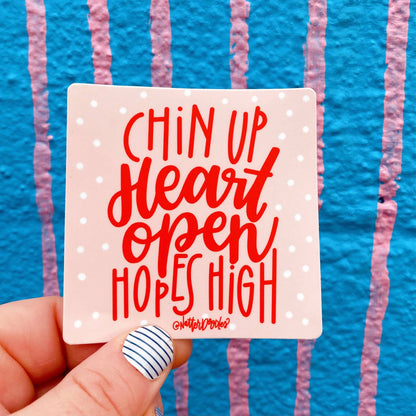 CHiN UP
Heart
open
HOPES HiGH
@NatterDoodles